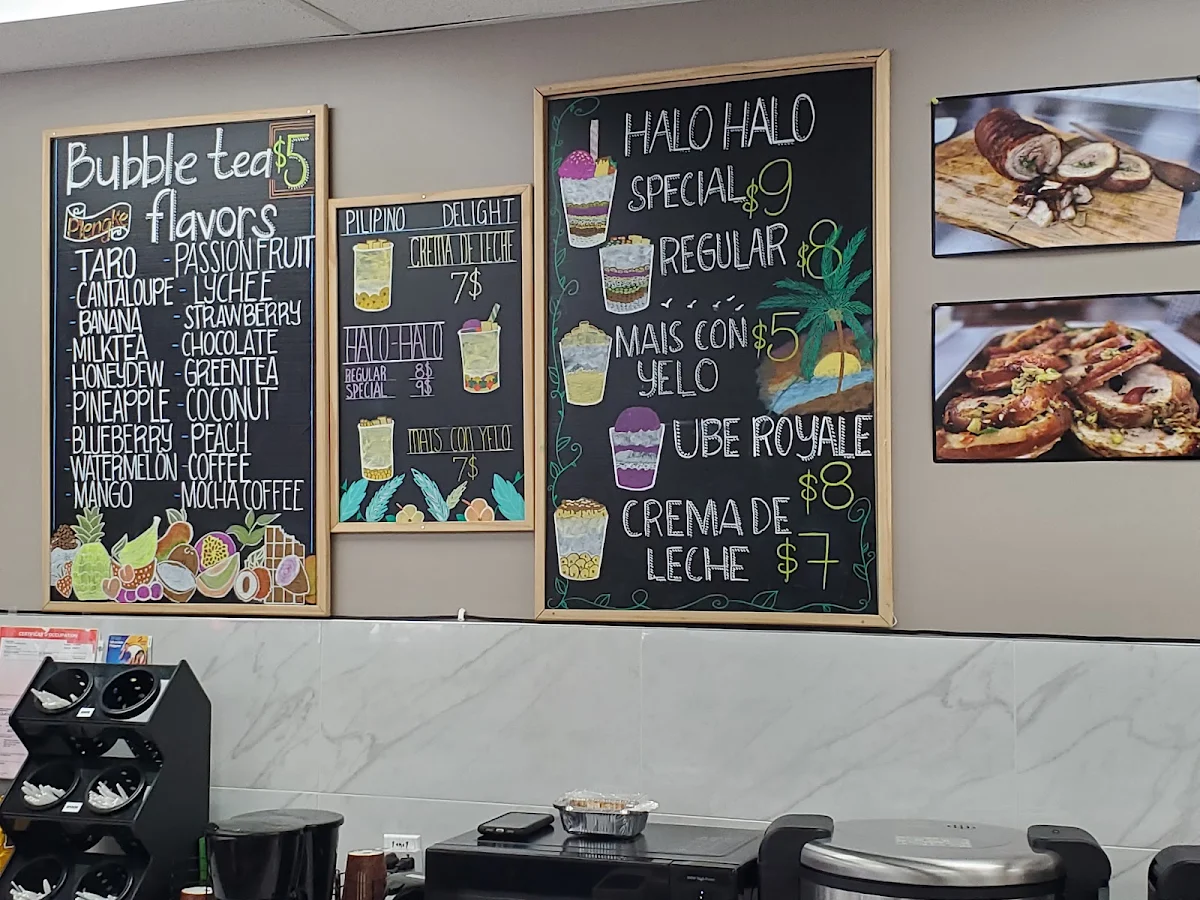 Bubble tea $5
Plengke flavors
- TARO
- CANTALOUPE
- BANANA
- MILKTEA
- HONEYDEW
- PINEAPPLE
- BLUEBERRY
- WATERMELON
- MANGO
- PASSION FRUIT
- LYCHEE
- STRAWBERRY
- CHOCOLATE
- GREENTEA
- COCONUT
- PEACH
- COFFEE
- MOCHA COFFEE
PILIPINO DELIGHT
CREMA DE LECHE
7$
HALO-HALO
REGULAR 8$
SPECIAL 9$
MAIS CON YELO
7$
HALO HALO
SPECIAL $9
REGULAR $8
MAIS CON $5
YELO
UBE ROYALE
$8
CREMA DE
LECHE $7